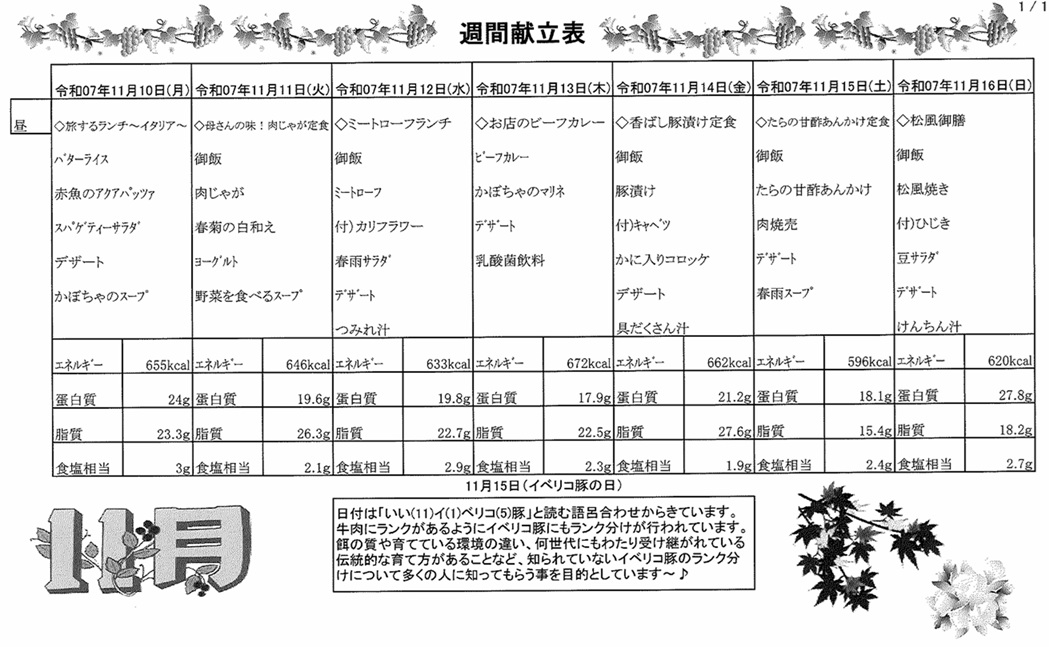 1/1
週間献立表
令和07年11月10日(月) 令和07年11月11日(火) 令和07年11月12日(水) 令和07年11月13日(木) 令和07年11月14日(金) 令和07年11月15日(土) 令和07年11月16日(日)
昼
◇旅するランチ～イタリア～ ◇母さんの味！肉じゃが定食 ◇ミートローフランチ ◇お店のビーフカレー ◇香ばし豚漬け定食 ◇たらの甘酢あんかけ定食 ◇松風御膳
ﾊﾞﾀｰライス 御飯 御飯 ﾋﾞｰﾌｶﾚｰ 御飯 御飯 御飯
赤魚のｱｸｱﾊﾟｯﾂｧ 肉じゃが ﾐｰﾄﾛｰﾌ かぼちゃのマリネ 豚漬け たらの甘酢あんかけ 松風焼き
ｽﾊﾟｹﾞﾃｨｰｻﾗﾀﾞ 春菊の白和え 付）カリフラワー ﾃﾞｻﾞｰﾄ 付)ｷｬﾍﾞﾂ 肉焼売 付)ひじき
デザート ﾖｰｸﾞﾙﾄ 春雨ｻﾗﾀﾞ 乳酸菌飲料 かに入りコロッケ ﾃﾞｻﾞｰﾄ 豆ｻﾗﾀﾞ
かぼちゃのｽｰﾌﾟ 野菜を食べるｽｰﾌﾟ ﾃﾞｻﾞｰﾄ デザート 春雨ｽｰﾌﾟ ﾃﾞｻﾞｰﾄ
つみれ汁 具だくさん汁 けんちん汁
ｴﾈﾙｷﾞｰ 655kcal ｴﾈﾙｷﾞｰ 646kcal ｴﾈﾙｷﾞｰ 633kcal ｴﾈﾙｷﾞｰ 672kcal ｴﾈﾙｷﾞｰ 662kcal ｴﾈﾙｷﾞｰ 596kcal ｴﾈﾙｷﾞｰ 620kcal
蛋白質 24g 蛋白質 19.6g 蛋白質 19.8g 蛋白質 17.9g 蛋白質 21.2g 蛋白質 18.1g 蛋白質 27.8g
脂質 23.3g 脂質 26.3g 脂質 22.7g 脂質 22.5g 脂質 27.6g 脂質 15.4g 脂質 18.2g
食塩相当 3g 食塩相当 2.1g 食塩相当 2.9g 食塩相当 2.3g 食塩相当 1.9g 食塩相当 2.4g 食塩相当 2.7g
11月15日(イベリコ豚の日)
日付は「いい(11)イ(1)ベリコ(5)豚」と読む語呂合わせからきています。
牛肉にランクがあるようにイベリコ豚にもランク分けが行われています。
餌の質や育てている環境の違い、何世代にもわたり受け継がれている
伝統的な育て方があることなど、知られていないイベリコ豚のランク分
けについて多くの人に知ってもらう事を目的としています～♪
11月